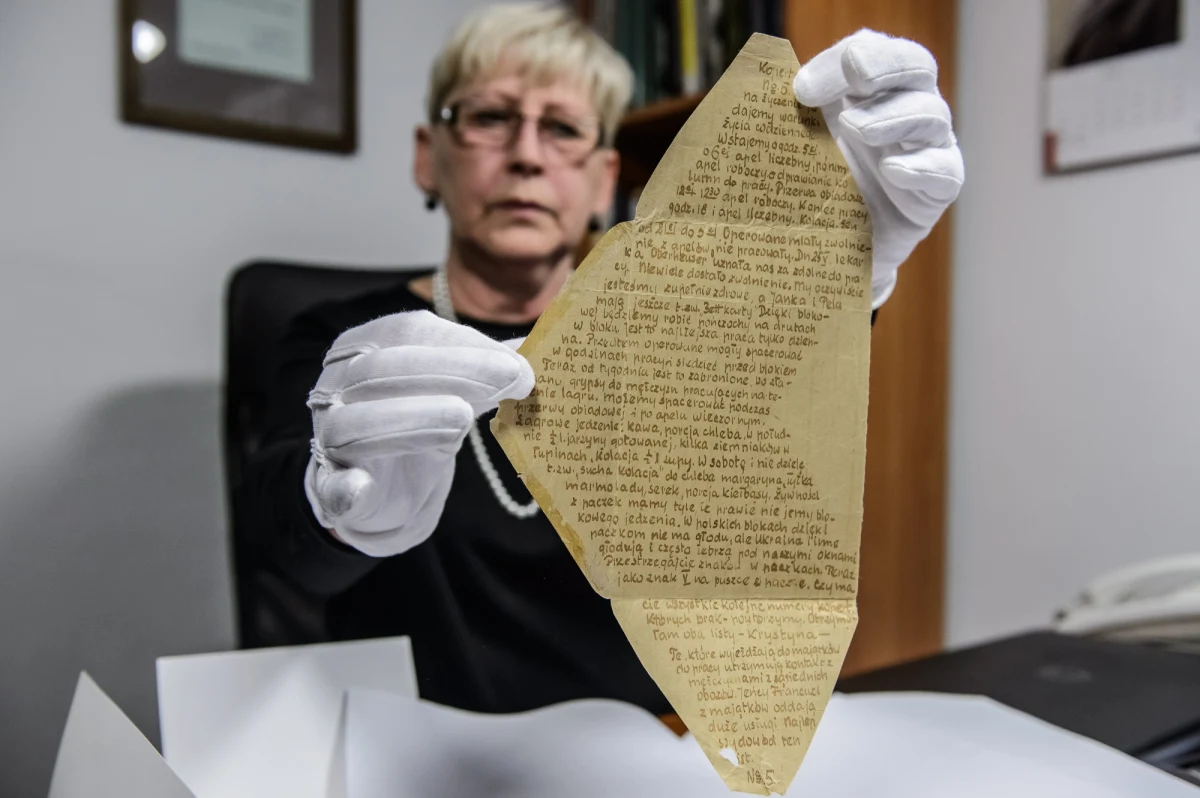 Kopert
№ 5
na życzenie
dajemy warunki
życia codzienneg
Wstajemy o godz. 5 tej.
o 6 ej apel liczebny, potem
apel roboczy, odprawianie ko
lumn do pracy. Przerwa obiadowa
12 30 apel roboczy. Koniec pracy
godz. 18 i apel liczebny. Kolacja. Sen
od 21 do 5 ej Operowane miały zwolnie-
nie z apelów, nie pracowały. Dn lekar
ka Oberheuser uznała nas za zdolne do pra
cy. Niewiele dostało zwolnienie. My oczywiście
jesteśmy zupełnie zdrowe, a Janka i Pela
mają jeszcze t.zw. Bettkarty Dzięki bloko-
wej będziemy robić pończochy na drutach
w bloku, jest to najlżejsza praca tylko dzien-
na. Przedtem operowane mogły spacerować
w godzinach pracy i siedzieć przed blokiem
Teraz od tygodnia jest to zabronione, bo zła-
pano grypsy do mężczyzn pracujących na te-
renie lagru. Możemy spacerować podczas
przerwy obiadowej i po apelu wieczornym.
Lagrowe jedzenie: kawa, porcja chleba, w połud-
nie ½ l. jarzyny gotowanej, kilka ziemniaków w
łupinach, kolacja ½ l zupy. W sobotę i niedzielę
t.zw. "sucha kolacja" do chleba margaryna, łyżka
marmolady, serek, porcja kiełbasy. Żywności
z paczek mamy tyle, że prawie nie jemy blo-
kowego jedzenia. W polskich blokach dzięki
paczkom nie ma głodu, ale Ukraina i inne
głodują i często żebrzą pod naszymi oknami
Przestrzegajcie znaków w paczkach. Teraz
jako znak V na puszce w paczce. Czy ma
cie wszystkie kolejne numery kopert.
Których brak - powtórzymy. Otrzyma-
łam oba listy - Krystyna -
Te, które wyjeżdżają do majątków
do pracy utrzymują kontakt z
mężczyznami z sąsiednich
obozów. Jeńcy Francuzi
z majątków oddają
duże usługi Najlep
szy dowód ten
list.
№ 5.